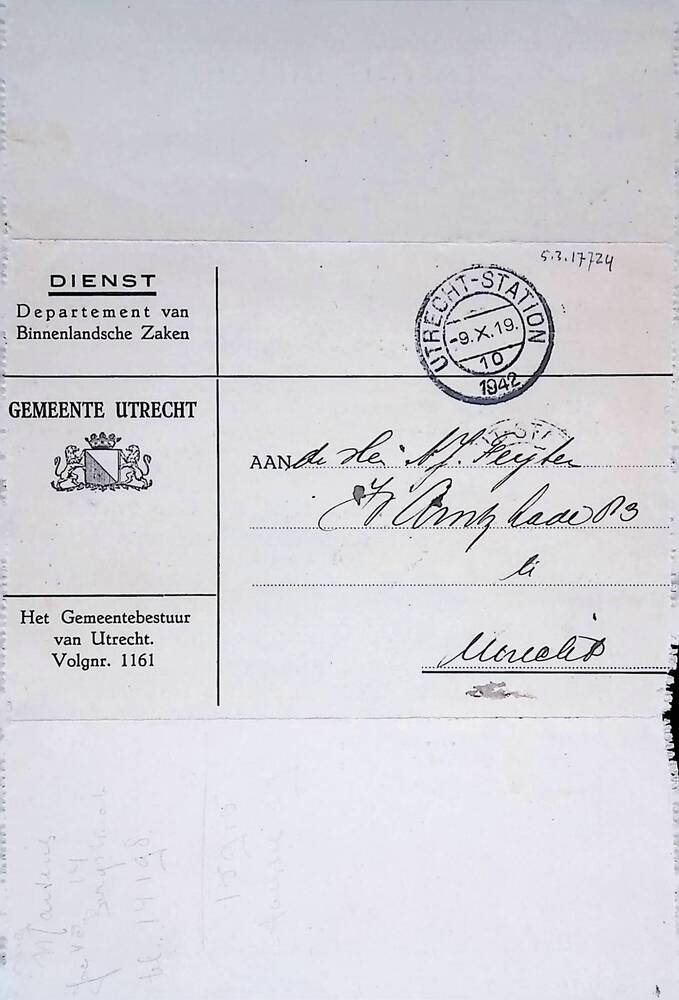 5.3.17724
DIENST
Departement van
Binnenlandsche Zaken
UTRECHT-STATION
-9.X.19.
10
1942
GEMEENTE UTRECHT
AAN de Her
Kade 83
Utrecht
Het Gemeentebestuur
van Utrecht.
Volgnr. 1161
14
tel. 14198